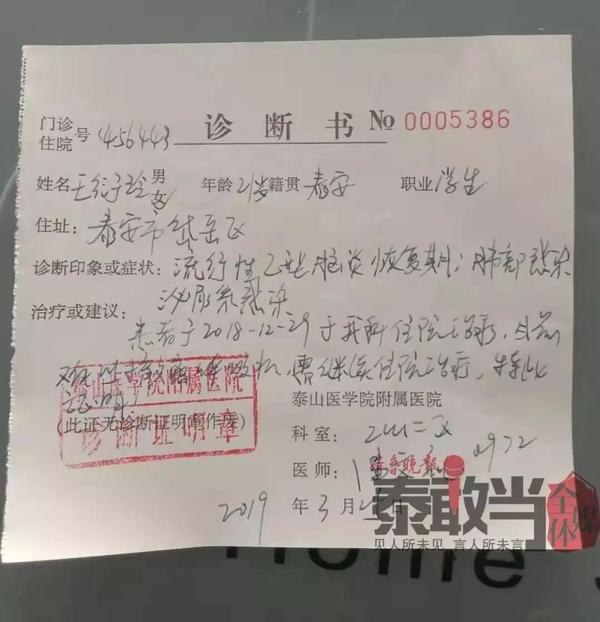 门诊
住院 号 456443 诊断书 № 0005386
姓名 王衍玲 男 女 年龄 21岁 籍贯 泰安 职业 学生
住址: 泰安市岱岳区
诊断印象或症状: 流行性乙型脑炎恢复期; 肺部感染
泌尿系感染
治疗或建议:
患者于2018-12-29于我科住院治疗, 目前
需继续住院治疗, 特此
证明
泰山医学院附属医院
诊断证明章
(此证无诊断证明章作废)
泰山医学院附属医院
科室:
医师: 0972
齐鲁晚报
2019 年 3 月 日
泰敢当 全媒体
见人所未见 言人所未言
Home